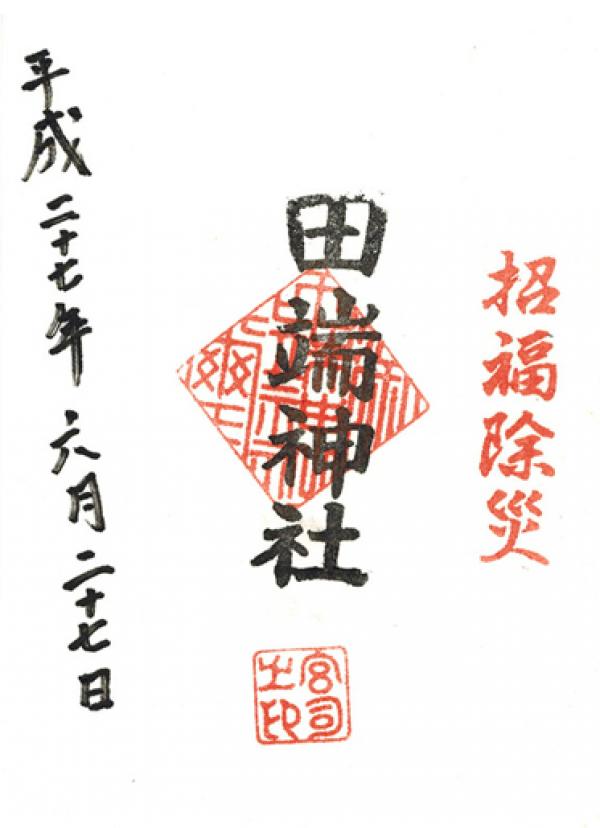 招福除災
田端神社
宮司之印
平成二十七年六月二十七日